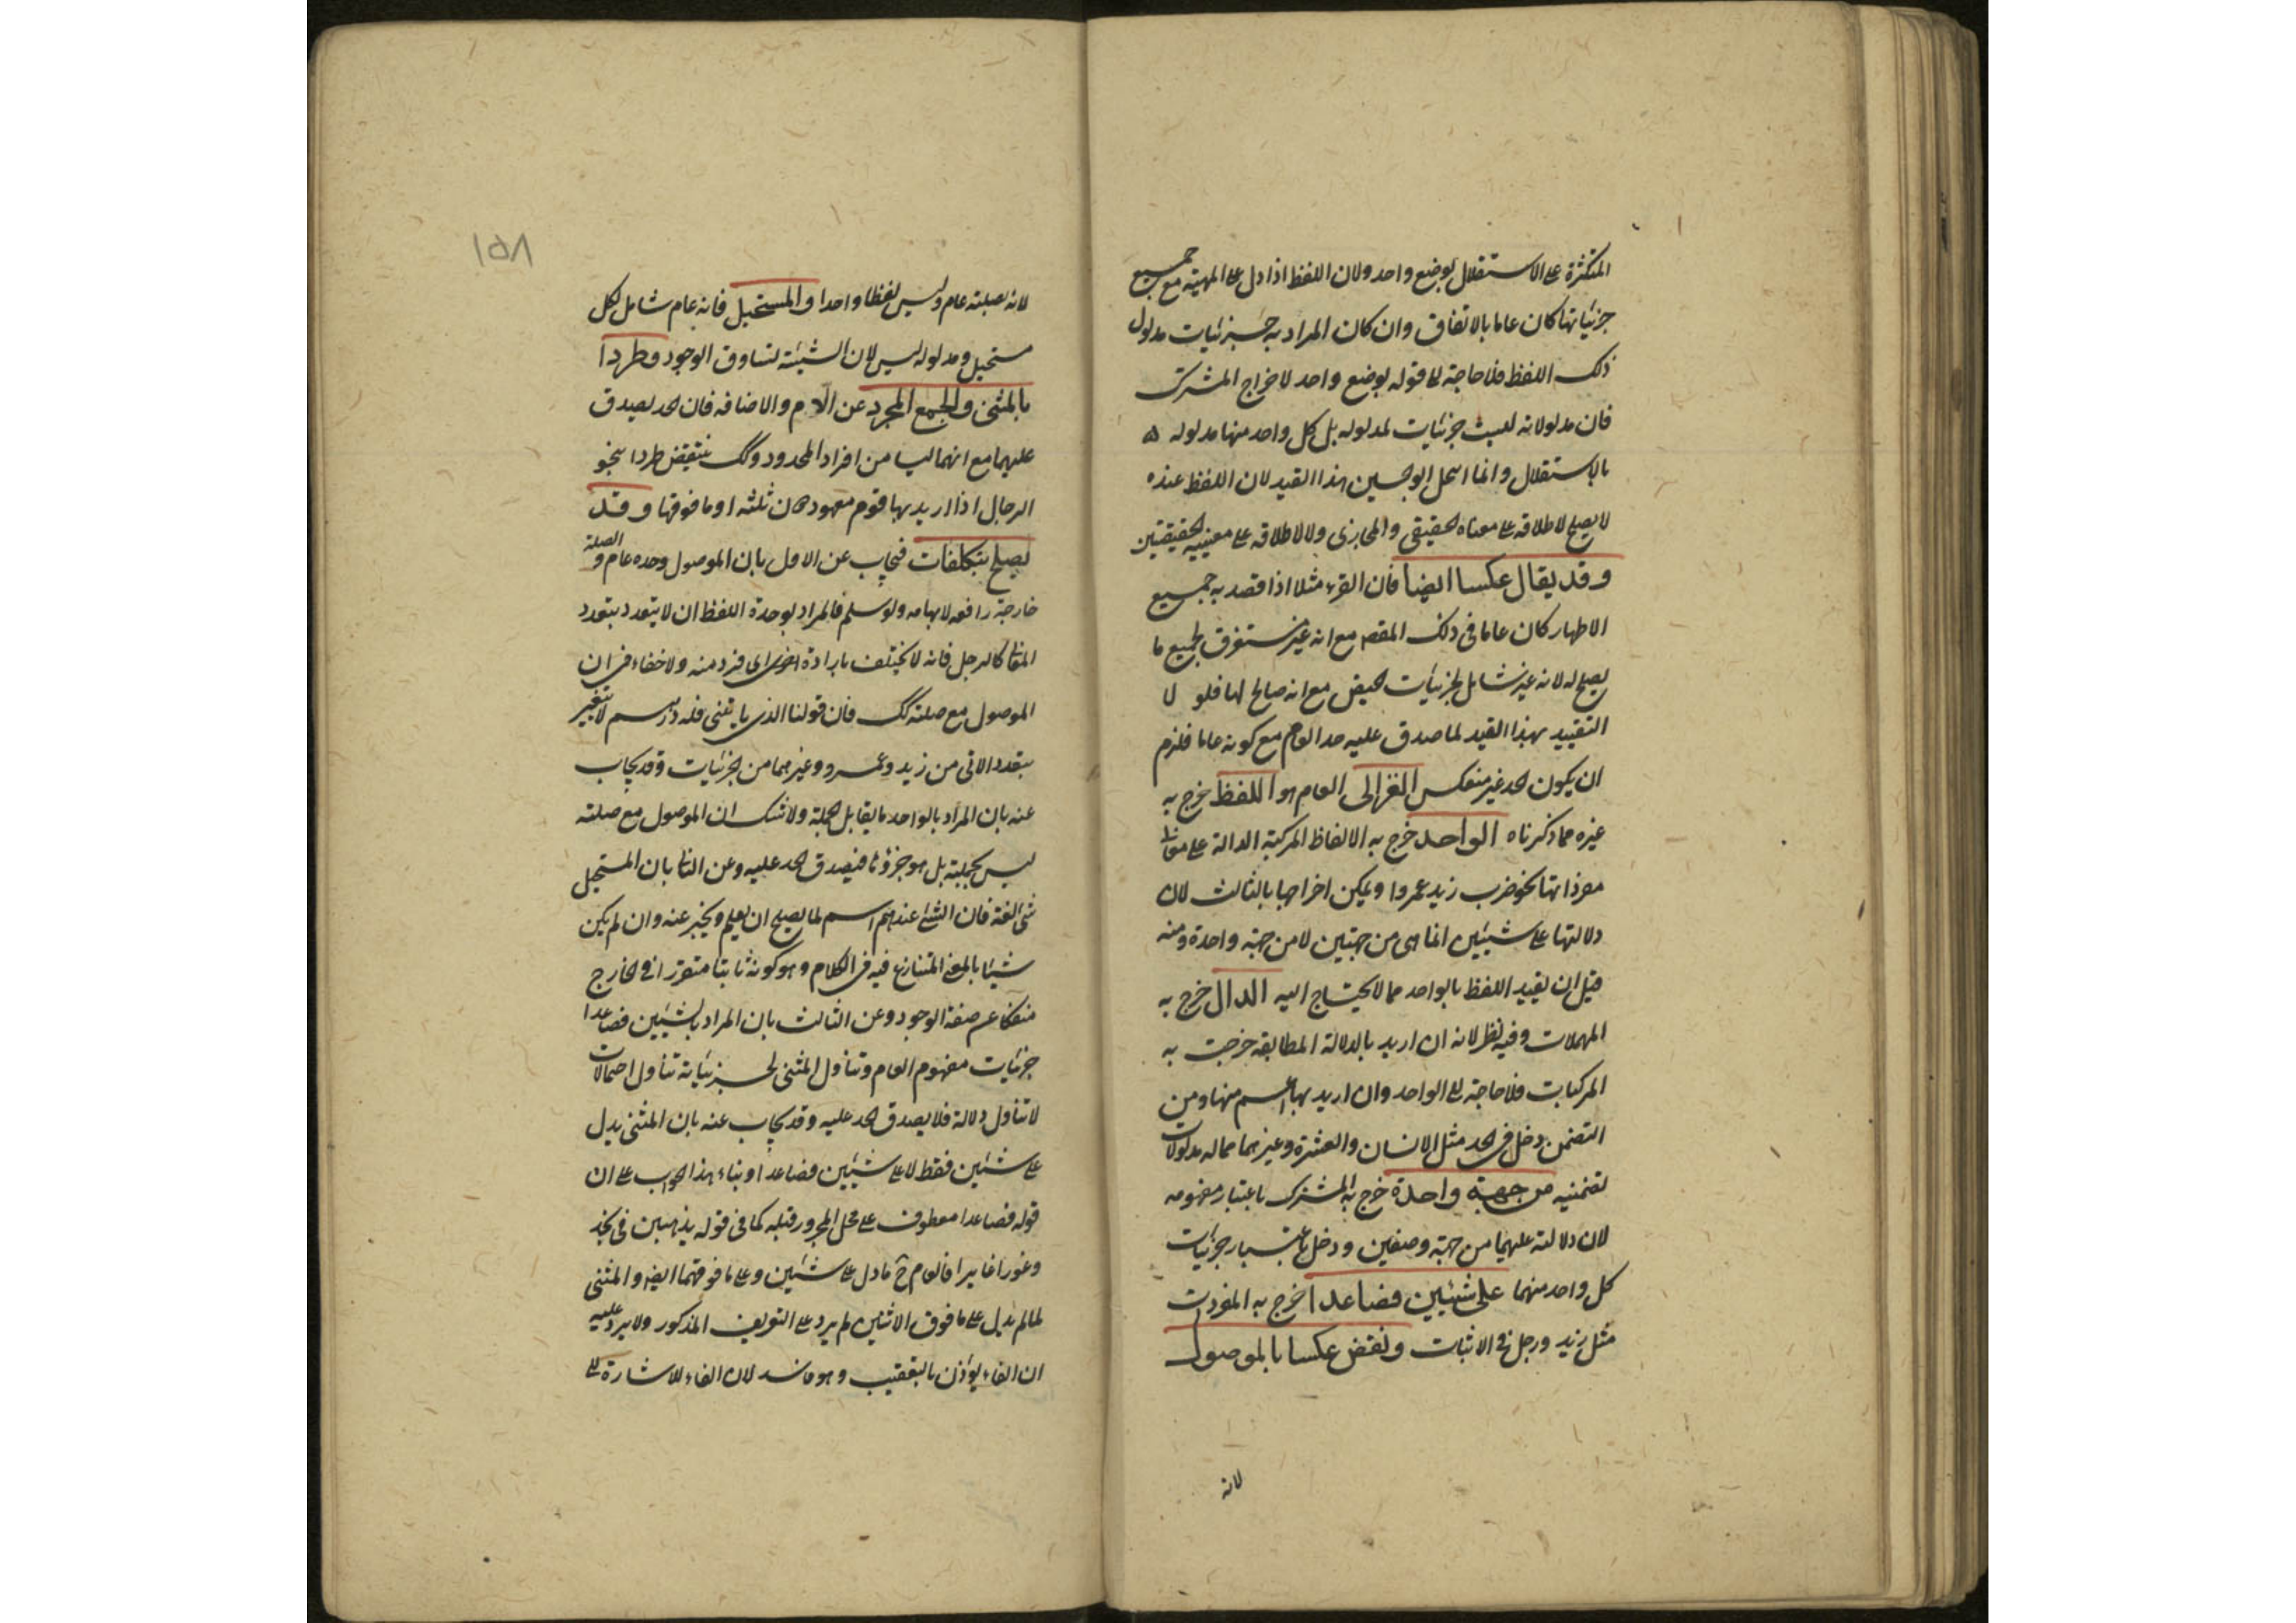 المتكثرة على الاستقلال بوضع واحد ولان اللفظ اذا دل على المهية مع جميع
جزئياتها كان عاما بالاتفاق وان كان المراد به جزئيات مدلول
ذلك اللفظ فلا حاجة الى قوله بوضع واحد لاخراج المشترك
فان مدلولاته ليست جزئيات لمدلوله بل كل واحد منها مدلوله
بالاستقلال وانما ابو الحسين هذا القيد لان اللفظ عنده
لا يصلح لاطلاقه على معناه الحقيقي والمجازي ولا لاطلاقه على معنييه الحقيقيين
وقد يقال عكسا ايضا فان القرء مثلا اذا قصد به جميع
الاطهار كان عاما في ذلك المقصد مع انه غير مستغرق لجميع ما
يصلح له لانه غير شامل لجزئيات الحيض مع انه صالح لها فلولا
التقييد بهذا القيد لما صدق عليه حد العام مع كونه عاما فلزم
ان يكون الحد غير منعكس الغزالي العام هو اللفظ خرج به
غيره مما ذكرناه الواحد خرج به الالفاظ المركبة الدالة على معاني
مفرداتها نحو ضرب زيد عمروا ويمكن اخراجها بالثالث لان
دلالتها على شيئين انما هي من جهتين لا من جهة واحدة ومنه
قيل ان تقييد اللفظ بالواحد مما لا يحتاج اليه الدال خرج به
المهملات وفيه نظر لانه ان اريد بالدلالة المطابقة خرجت به
المركبات فلا حاجة الى الواحد وان اريد بها اعم منها ومن
التضمن دخل في الحد مثل الانسان والعشرة وغيرهما مما له مدلولات
تضمنية من جهة واحدة خرج به المشترك باعتبار مفهومه
لان دلالته عليهما من جهة وصفين ودخل باعتبار جزئيات
كل واحد منهما على شيئين فصاعدا خرج به المفردات
مثل زيد ورجل في الاثبات ونقض عكسا بالموصول
لانه
١٥٨
لانه بصلته عام وليس لفظا واحدا والمستحيل فانه عام شامل لكل
مستحيل ومدلوله ليس لان الشيئية تساوق الوجود وطردا
بالمثنى والجمع المجرد عن اللام والاضافة فان الحد يصدق
عليهما مع انهما ليسا من افراد المحدود وكك ينتقض طردا بنحو
الرجال اذا اريد بها قوم معهودون ثلثة او ما فوقها وقد
يصلح بتكلفات فيجاب عن الاول بان الموصول وحده عام والصلة
خارجة رافعه لابهامه ولو سلم فالمراد بوحدة اللفظ ان لا يتعدد بتعدد
المعاني كالرجل فانه لا يختلف بارادة اي فرد منه ولا خفاء في ان
الموصول مع صلته كك فان قولنا الذي ياتيني فله درهم لا يتغير
بتعدد الاتي من زيد وعمرو وغيرهما من الجزئيات وقد يجاب
عنه بان المراد بالواحد ما يقابل الجملة ولا شك ان الموصول مع صلته
ليس بجملة بل هو جزؤها فيصدق الحد عليه وعن الثاني بان المستحيل
شئ لغة فان الشئ عندهم اسم لما يصلح ان يعلم ويخبر عنه وان لم يكن
شيئا بالمعنى المتنازع فيه في الكلام وهو كونه ثابتا متقررا في الخارج
منفكا عن صفة الوجود وعن الثالث بان المراد بالشيئين فصاعدا
جزئيات مفهوم العام وتناول المثنى لجزئياته تناول احتمالات
لا تناول دلالة فلا يصدق الحد عليه وقد يجاب عنه بان المثنى يدل
على شيئين فقط لا على شيئين فصاعدا وبناء هذا الجواب على ان
قوله فصاعدا معطوف على محل المجرور قبله كما في قوله يذهبين في نجد
وغورا غايرا فالعام ح ما دل على شيئين وعلى ما فوقهما ايضا والمثنى
لما لم يدل على ما فوق الاثنين لم يرد على التعريف المذكور ولا يرد عليه
ان الفاء يؤذن بالتعقيب وهو فاسد لان الفاء للاشارة الى